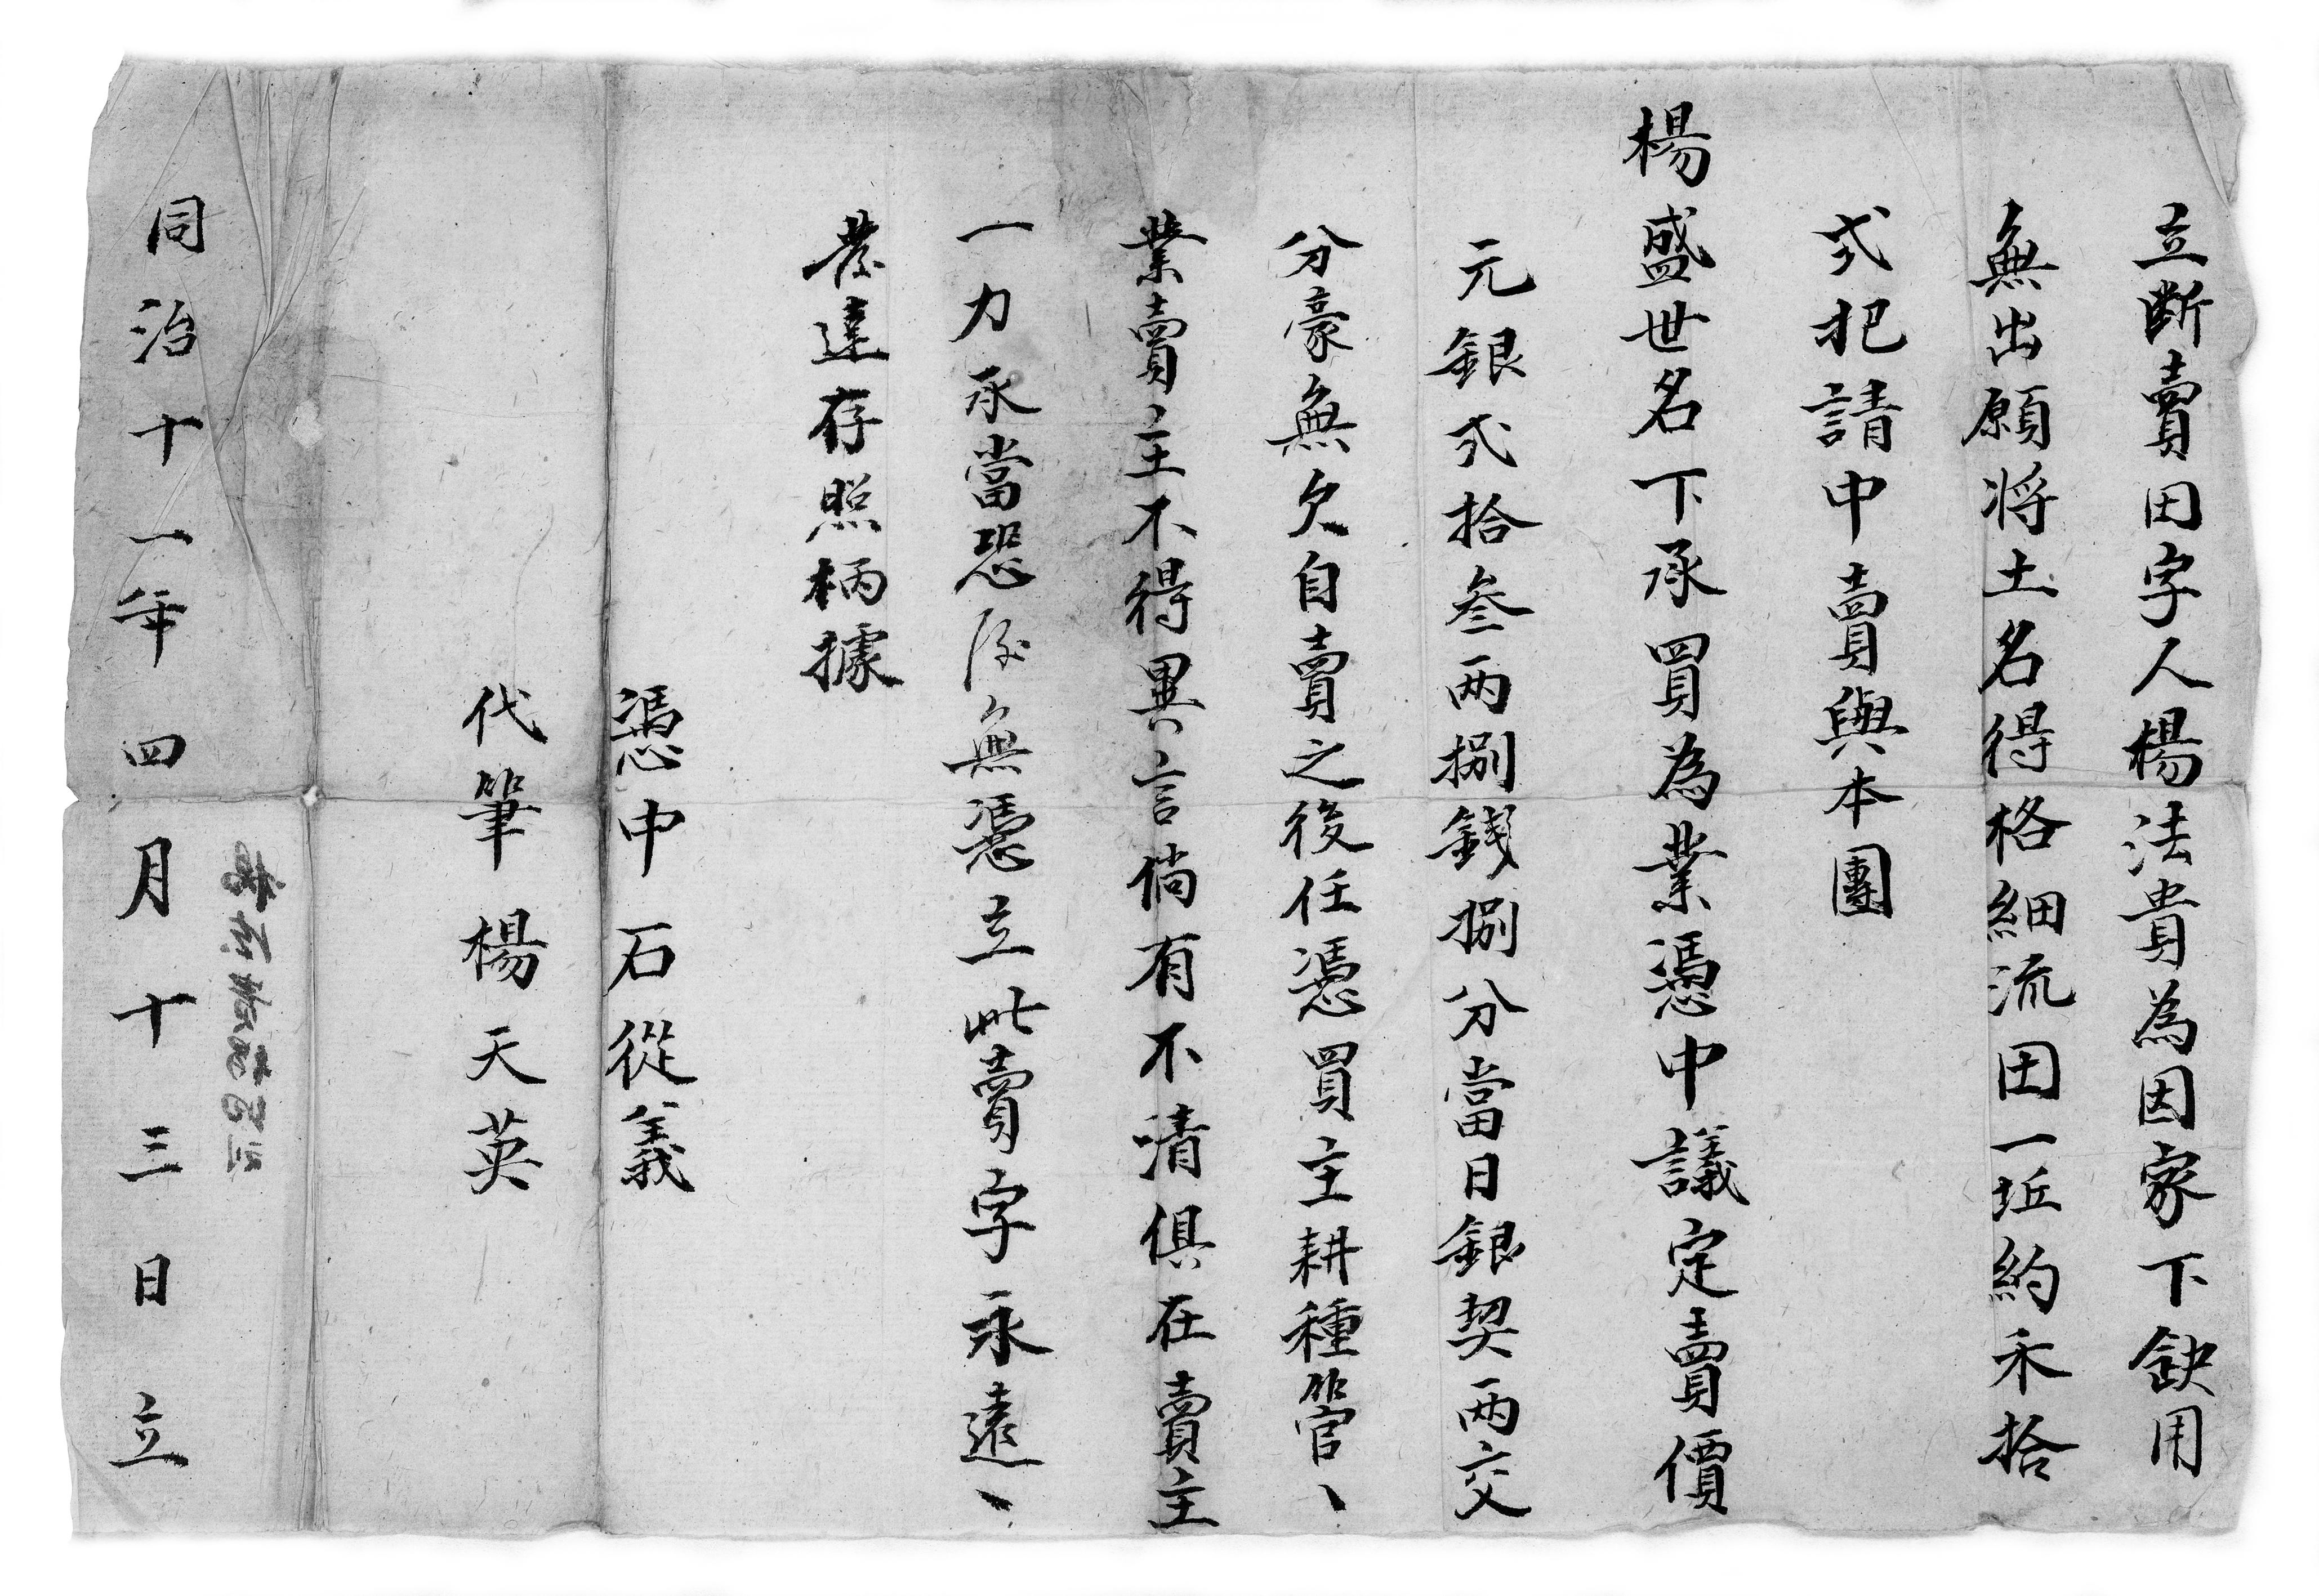 立断賣田字人楊法貴為因家下缺用
無出願将土名得格細流田一坵約禾拾
弍把請中賣與本團
楊盛世名下承買為業憑中議定賣價
元銀弍拾叁両捌錢捌分當日銀契両交
分豪無欠自賣之後任憑買主耕種管、
業賣主不得異言倘有不清俱在賣主
一力承當恐後無憑立此賣字永遠、
發達存照柄據
憑中石從義
代筆楊天英
同治十一年四月十三日立